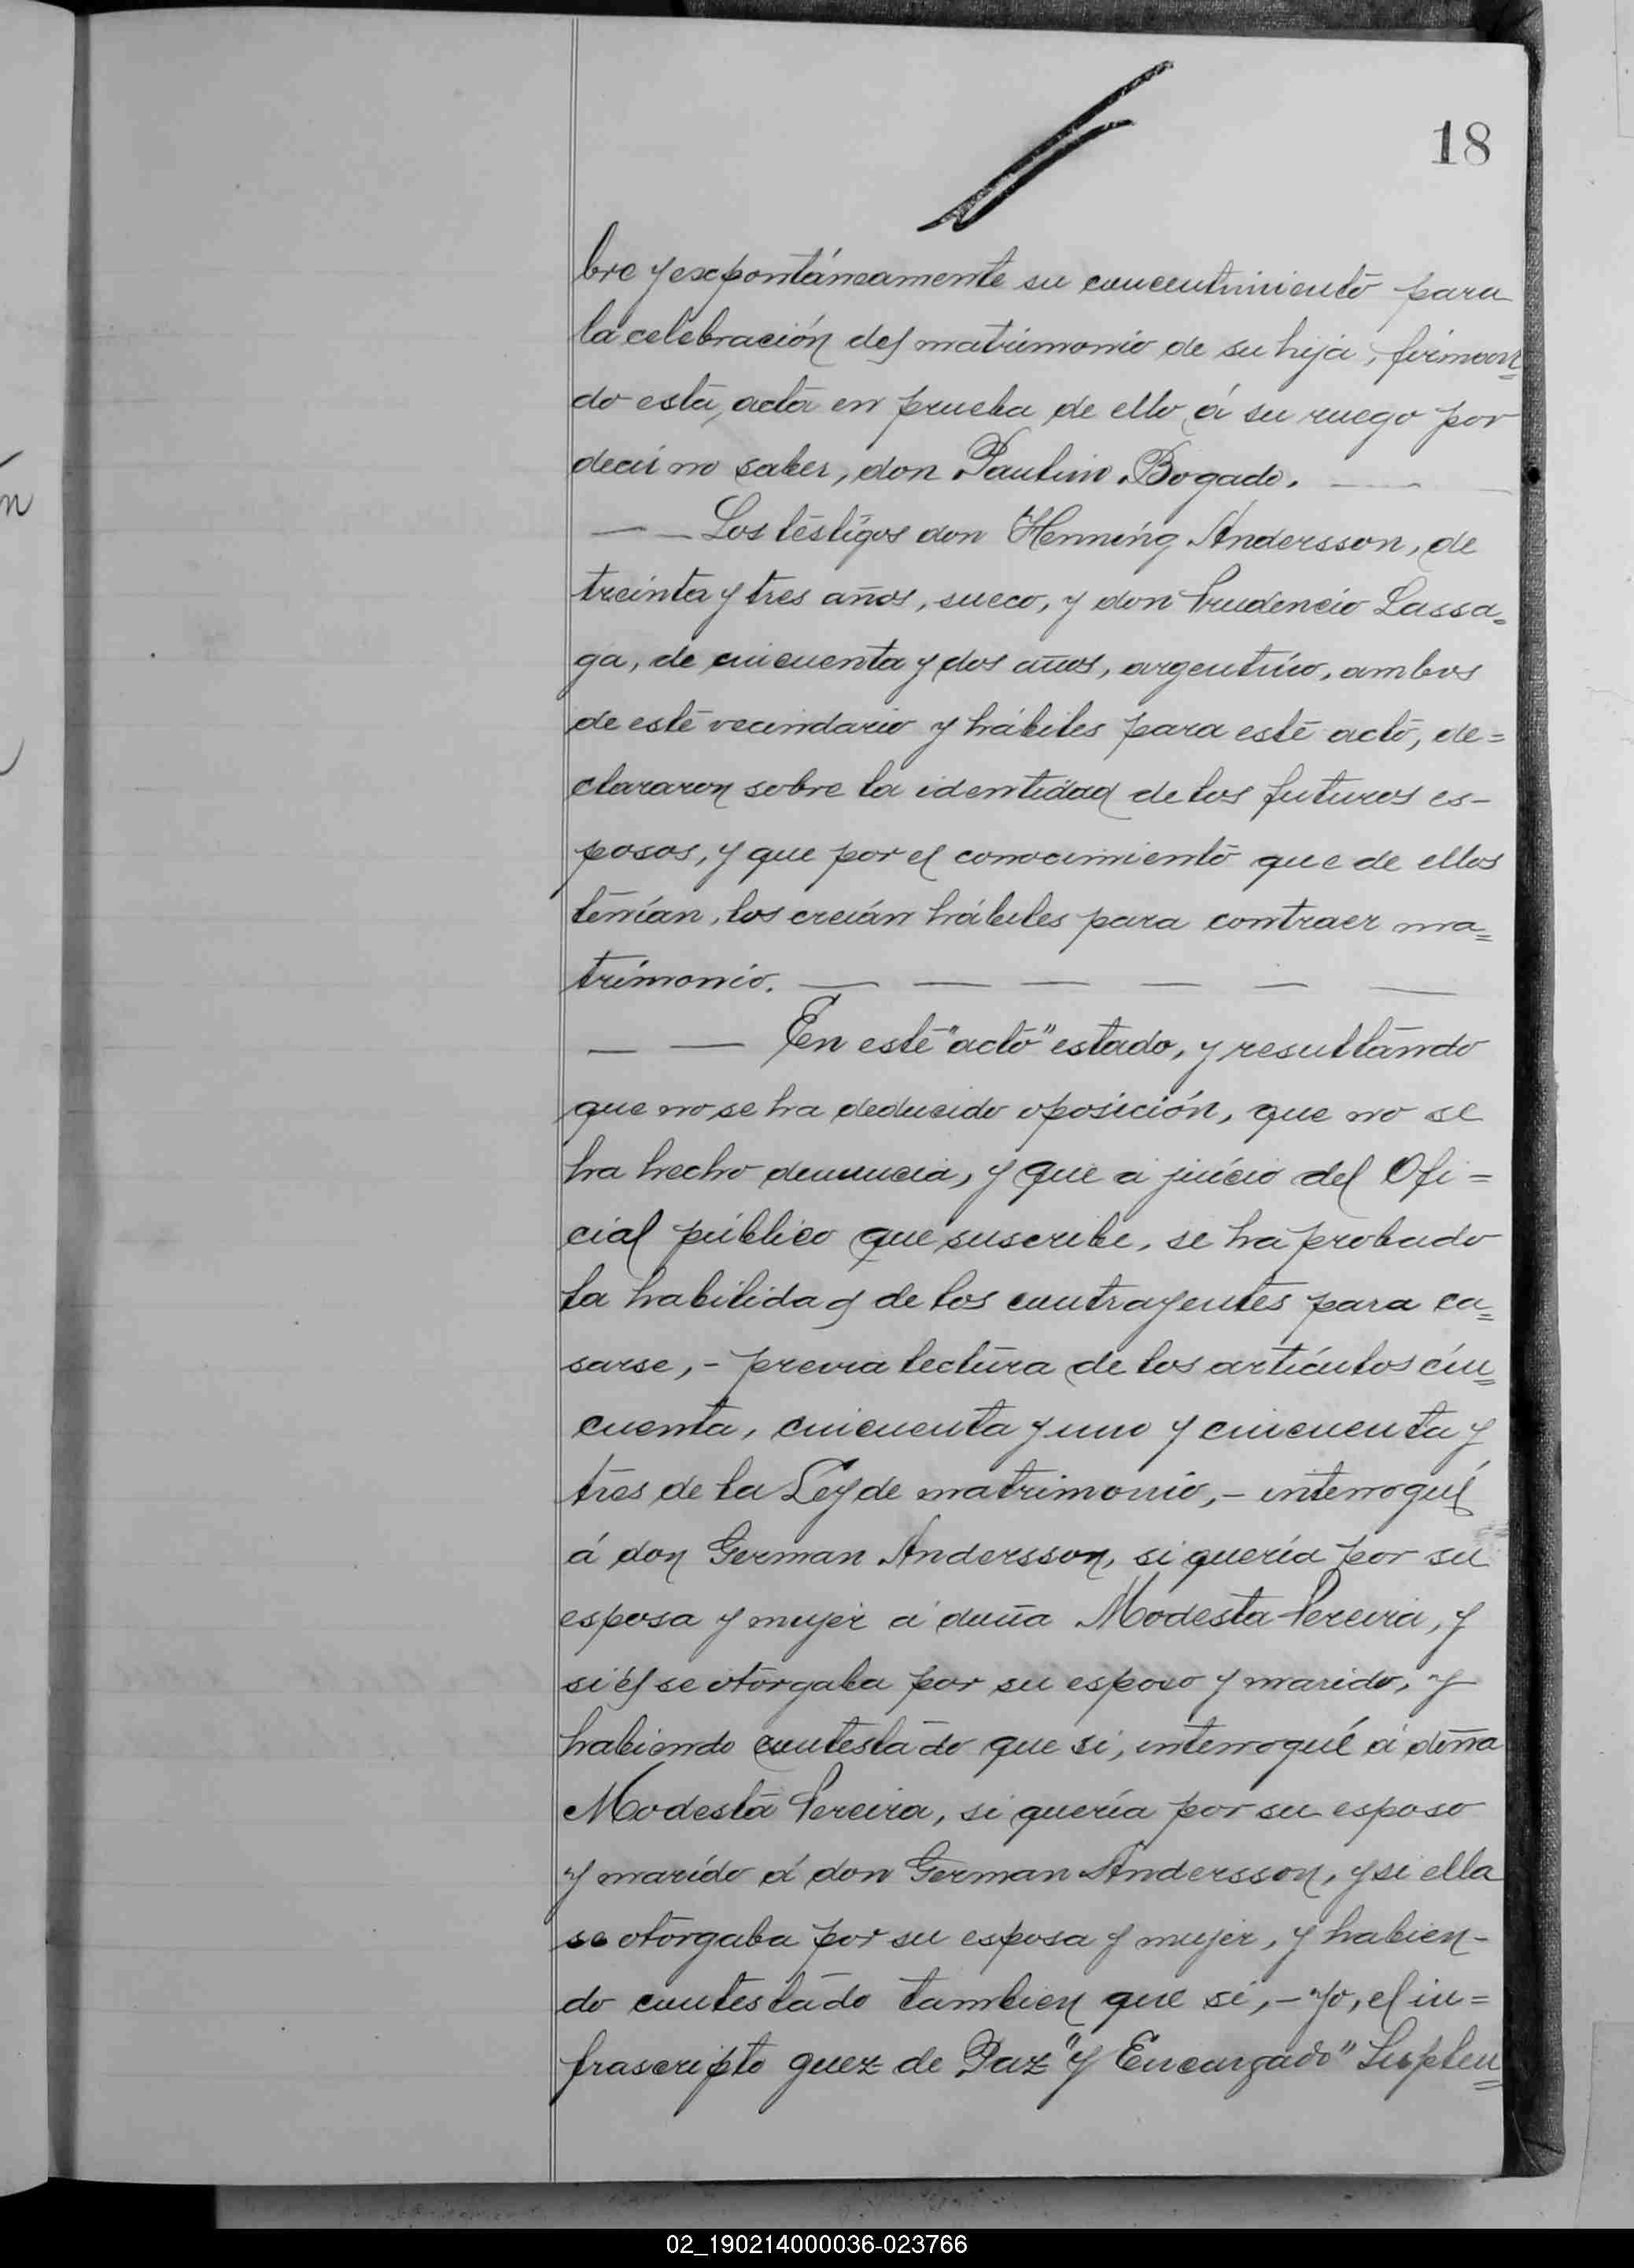 18
bre y expontáneamente su concentimiento para
la celebración del matrimonio de su hija, firman=
do esta acta en prueba de ello á su ruego por
decir no saber, don Paulino Bogado. — —
— — Los testigos don Henning Andersson, de
treinta y tres años, sueco, y don Prudencio Lassa=
ga, de cincuenta y dos años, argentino, ambos
de este vecindario y hábiles para este acto, de=
clararon sobre la identidad de los futuros es-
posos, y que por el conocimiento que de ellos
tenían, los creián hábiles para contraer ma=
trimonio. — — — — — —
— — En este "acto" estado, y resultando
que no se ha deducido oposición, que no se
ha hecho denuncia, y que a juicio del Ofi=
cial público que suscribe, se ha probado
la habilidad de los contrayentes para ca=
sarse, - previa lectura de los artículos cin=
cuenta, cincuenta y uno y cincuenta y
tres de la Ley de matrimonio, - interrogué
á don German Andersson, si quería por su
esposa y mujer á doña Modesta Pereira, y
si él se otorgaba por su esposo y marido, y
habiendo contestado que si, interrogué á doña
Modesta Pereira, si quería por su esposo
y marido á don German Andersson, y si ella
se otorgaba por su esposa y mujer, y habien-
do contestado tambien que si, - Yo, el in=
frascripto Juez de Paz "y Encargado" Suplen=
02_190214000036-023766